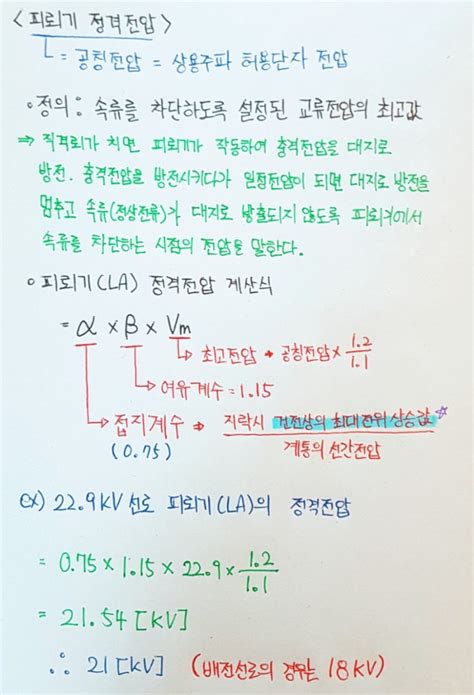 < 피뢰기 정격전압 >
= 공칭전압 = 상용주파 허용단자 전압
◦정의 : 속류를 차단하도록 설정된 교류전압의 최고값
⇒ 직격뢰가 치면 피뢰기가 작동하여 충격전압을 대지로
방전. 충격전압을 방전시키다가 일정전압이 되면 대지로 방전을
멈추고 속류(정상전류)가 대지로 방출되지 않도록 피뢰기에서
속류를 차단하는 시점의 전압을 말한다.
◦피뢰기(LA) 정격전압 계산식
= α × β × Vm
최고전압 → 공칭전압 × 1.2/1.1
여유계수 = 1.15
접지계수 ⇒ 지락시 건전상의 최대전위상승값☆
(0.75) 계통의 선간전압
ex) 22.9KV 선로 피뢰기(LA)의 정격전압
= 0.75 × 1.15 × 22.9 × 1.2/1.1
= 21.54 [KV]
∴ 21 [KV] (배전선로의 경우는 18KV)